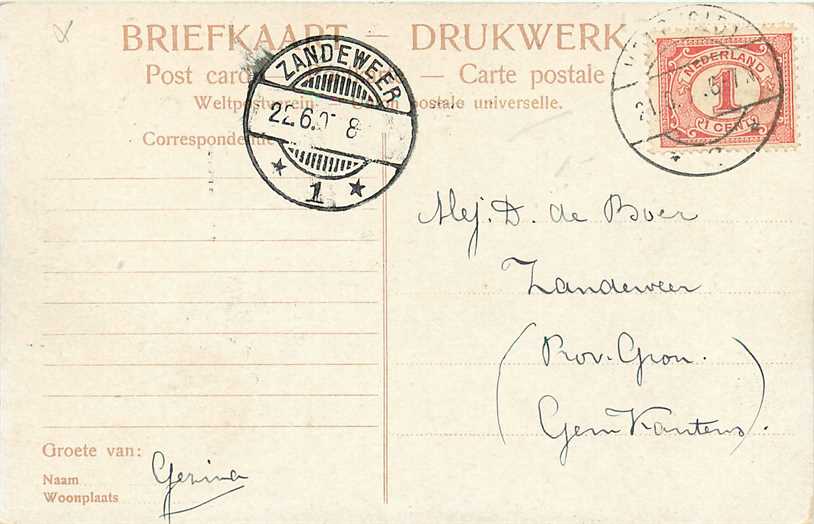 BRIEFKAART — DRUKWERK
Post card — Carte postale
Weltpostverein. — postale universelle.
Correspondentie
ZANDEWEER
22.6. 8
1
NEDERLAND
1
1 CENT
Mej. D. de Boer
Zandeweer
(Prov. Gron.
Gem Kantens)
Groete van:
Naam Gezina
Woonplaats